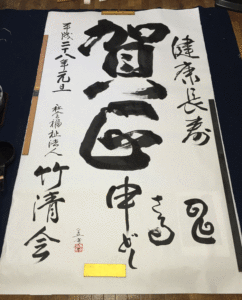 健康長寿
さる
賀正
申どし
平成二十八年元旦
社会福祉法人
竹清会